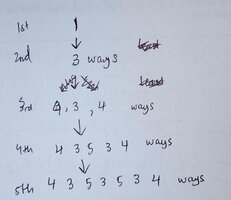 1st 1
2nd 3 ways
3rd 4, 3, 4 ways
4th 4 3 5 3 4 ways
5th 4 3 5 3 5 3 4 ways